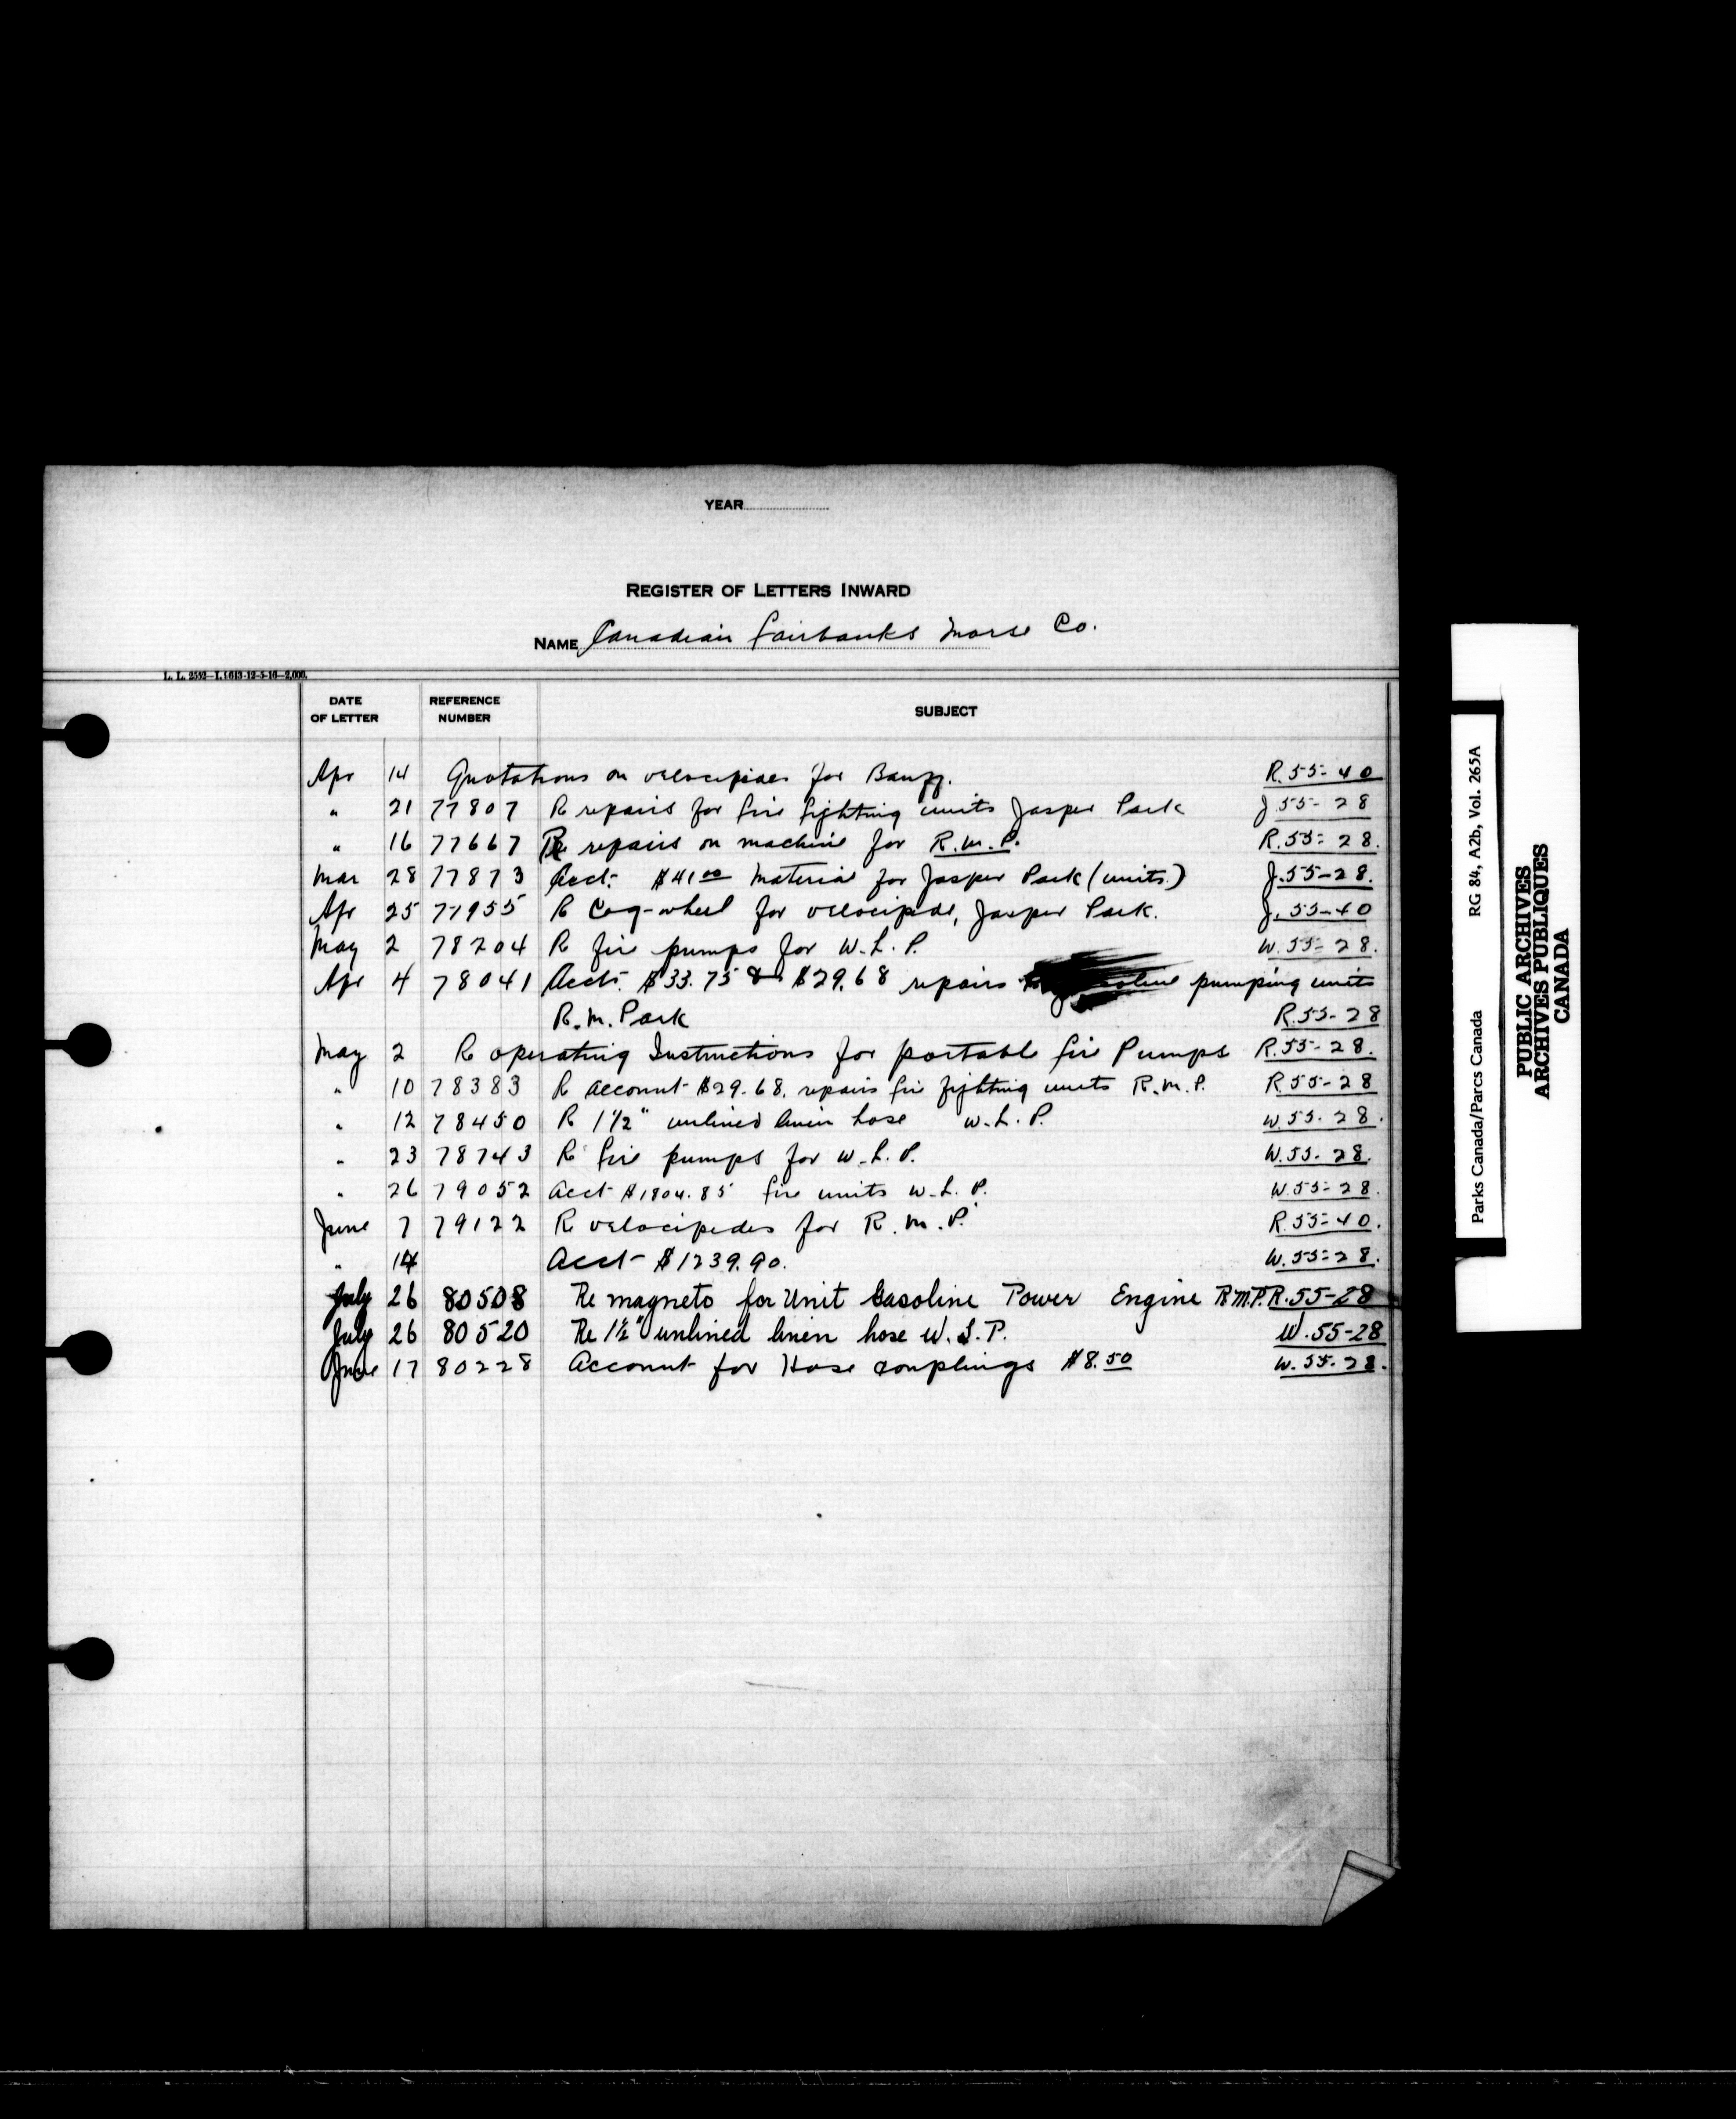 YEAR
REGISTER OF LETTERS INWARD
NAME Canadian Fairbanks Morse Co.
L. L. 2552—I. 1613-12-5-16—2,000.
DATE OF LETTER REFERENCE NUMBER SUBJECT
Apr 14 Quotations on velocipedes for Banff. R.55-40
" 21 77807 Re repairs for fire fighting units Jasper Park J 55-28
" 16 77667 Re repairs on machine for R.M.P. R.55-28.
Mar 28 77873 Acct. $41.00 Material for Jasper Park (units.) J.55-28.
Apr 25 77955 Re Cog-wheel for velocipede, Jasper Park. J.55-40
May 2 78204 Re fire pumps for W.L.P. W.55-28.
Apr 4 78041 Accts. $33.75 & $29.68 repairs pumping units
R.M. Park R.55-28
May 2 Re operating Instructions for portable fire Pumps R.55-28.
" 10 78383 Re account $29.68. repairs fire fighting units R.M.P. R.55-28
" 12 78450 Re 1 1/2" unlined linen hose W.L.P. W.55-28.
" 23 78743 Re fire pumps for W.L.P. W.55-28.
" 26 79052 Acct $1804.85 fire units W.L.P. W.55-28.
June 7 79122 Re velocipedes for R.M.P. R.55-40.
" 14 Acct $1239.90. W.55-28.
July 26 80508 Re magneto for Unit Gasoline Power Engine R.M.P. R.55-28
July 26 80520 Re 1½" unlined linen hose W.L.P. W.55-28
June 17 80228 Account for Hose couplings $8.50 W.55-28.
Parks Canada/Parcs Canada RG 84, A2b, Vol. 265A
PUBLIC ARCHIVES
ARCHIVES PUBLIQUES
CANADA